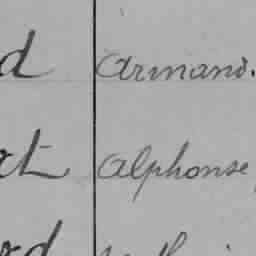 d Armand.
et Alphonse
od